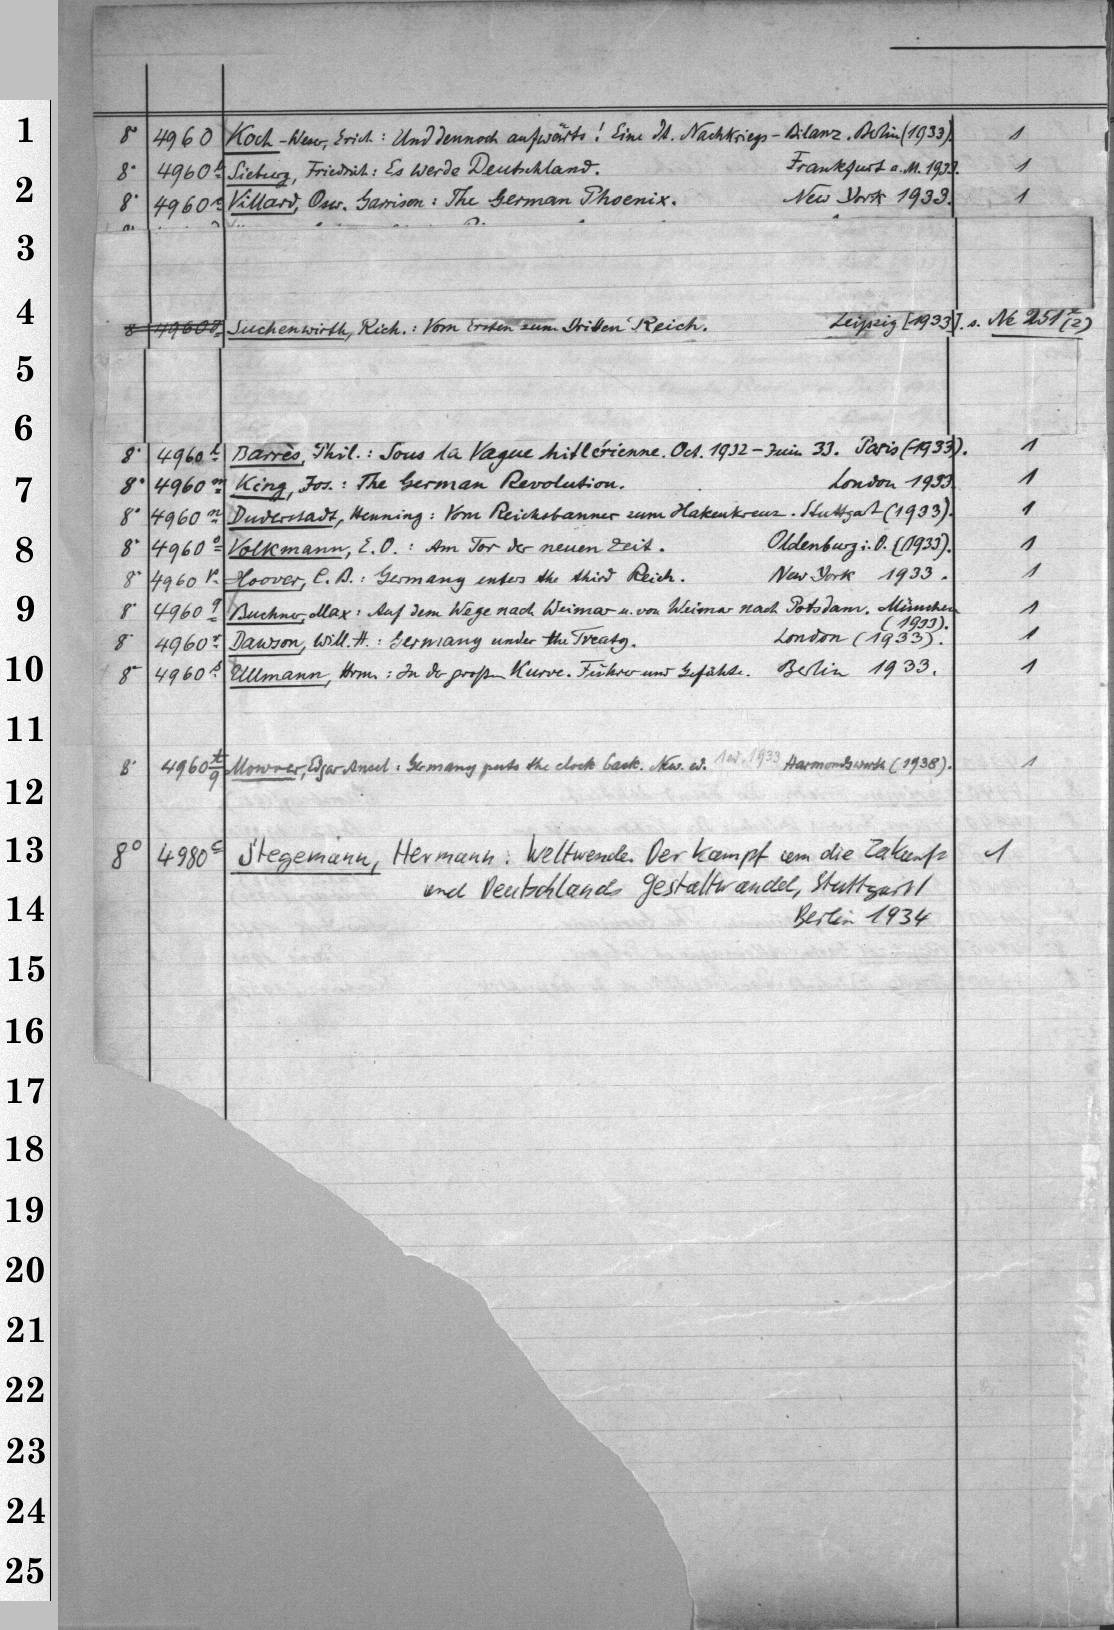 1
8° 4960 Koch-Weser, Erich: Und dennoch aufwärts! Eine dt. Nachkriegs-Bilanz. Berlin (1933). 1
8° 4960b Sieburg, Friedrich: Es werde Deutschland. Frankfurt a. M. 1933. 1
2
8° 4960c Villard, Osw. Garrison: The German Phoenix. New York 1933. 1
3
4
8° 4960g Suchenwirth, Rich.: Vom Ersten zum Dritten Reich. Leipzig [1933]. s. Nc 251 (2)
5
6
8° 4960l Barrès, Phil.: Sous la Vague hitlérienne. Oct. 1932 – Juin 33. Paris (1933). 1
7
8° 4960m King, Jos.: The German Revolution. London 1933. 1
8° 4960n Duderstadt, Henning: Vom Reichsbanner zum Hakenkreuz. Stuttgart (1933). 1
8
8° 4960o Volkmann, E. O.: Am Tor der neuen Zeit. Oldenburg i. O. (1933). 1
8° 4960p Hoover, C. B.: Germany enters the third Reich. New York 1933. 1
9
8° 4960q Buchner, Max: Auf dem Wege nach Weimar u. von Weimar nach Potsdam. München 1
(1933).
8° 4960r Dawson, Will. H.: Germany under the Treaty. London (1933). 1
10
8° 4960s Ullmann, Hrm.: In der großen Kurve. Führer und Geführte. Berlin 1933. 1
11
8° 4960t/9 Mowrer, Edgar Ansel: Germany puts the clock back. New. ed. 1 ed. 1933 Harmondsworth (1938). 1
12
13
8° 4980c Stegemann, Hermann: Weltwende. Der Kampf um die Zukunft 1
und Deutschlands Gestaltwandel, Stuttgart/
14
Berlin 1934
15
16
17
18
19
20
21
22
23
24
25